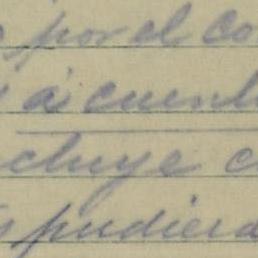 por el co
á cuent
cluye c
pudiera